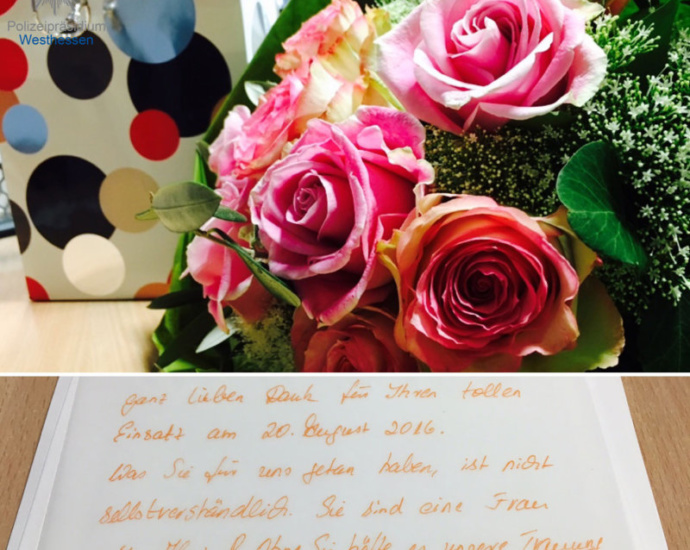 Polizeipräsidium
Westhessen
ganz lieben Dank für Ihren tollen
Einsatz am 20. August 2016.
Was Sie für uns getan haben, ist nicht
selbstverständlich. Sie sind eine Frau
Sie hätte es unsere Trauung